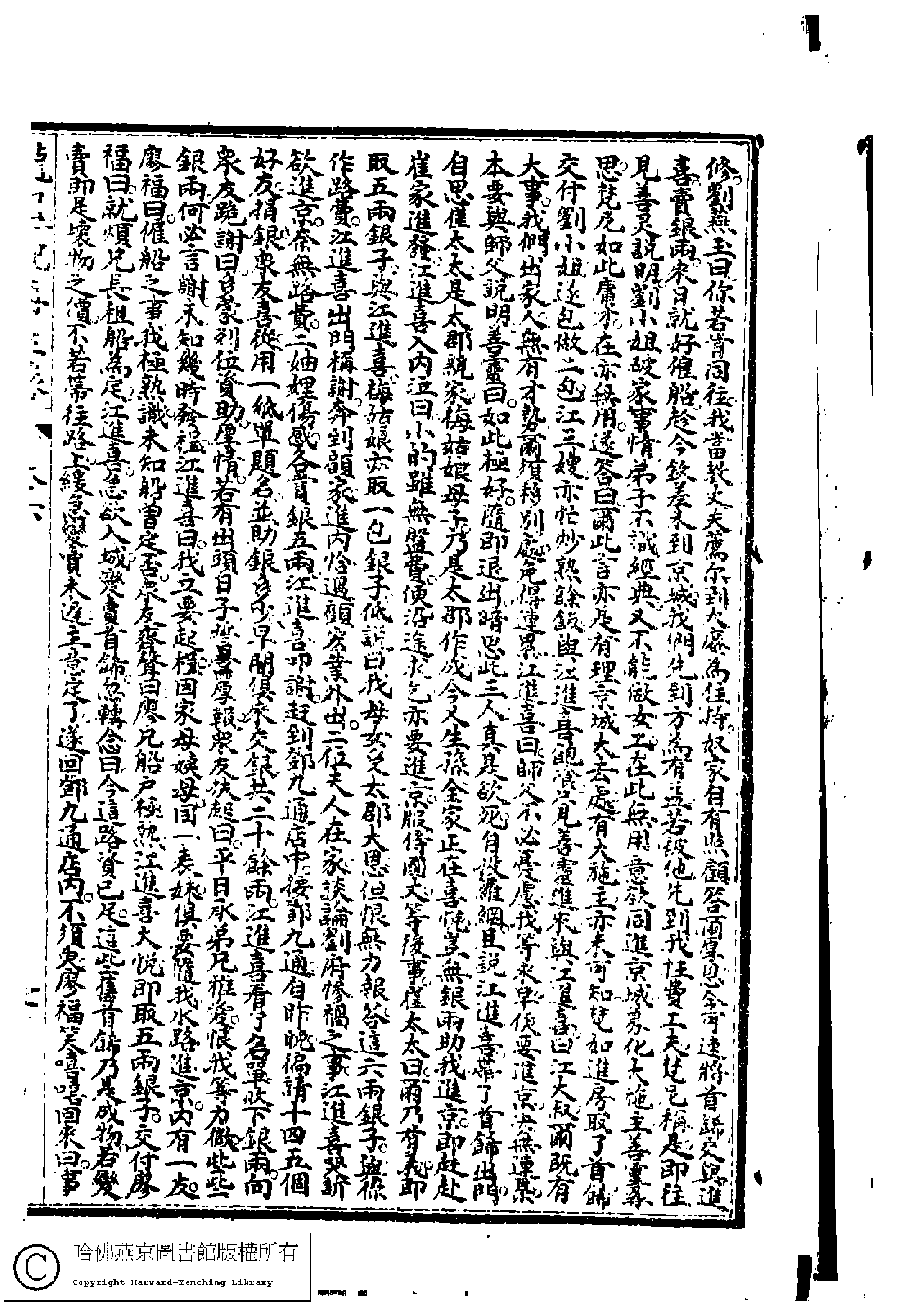 修劉燕玉曰你若肯同往我當教丈夫薦尔到大處為住持奴家自有照顧答爾泉恩今可速將首飾交與進
喜賣銀兩來日就好催船趁今欽差未到京城我們先到方為有益若被他先到我性費工夫梵如稱是即往
見善灵說明劉小姐破家事情弟子不識經典又不能做女工在此無用意欲同進京城募化大施主善靈尋
思梵如如此庸才在亦無用遂答曰爾此言亦是有理京城大去處有大施主亦未可知梵如進房取了首飾
交付劉小姐遂包做二包江三嫂亦忙炒熟餘飯與江進喜飽食見善靈進來與江進喜曰江大叔爾既有
大事我們出家人無有才勢爾須移別處免得連累江進喜曰師父不必憂慮我等來早便要進京决無連累
本要與師父說明善靈曰如此極好隨即退出暗思此三人真是欲死自投羅網且說江進喜帶了首飾出門
自思崔太太是太郡親家梅姑娘母子乃是太郡作成今又生孫金家正在喜悅豈無銀兩助我進京即赶赴
崔家進發江進喜入內泣曰小的雖無盤費便沿途求乞亦要進京服侍國丈等後事崔太太曰爾乃有義即
取五兩銀子與江進喜梅姑娘亦取一包銀子低訴曰我母女受太郡大恩但恨無力報答這六兩銀子與你
作路費江進喜出門稱謝奔到顧家進內恰遇顧宏業外出二位夫人在家談論劉府慘禍之事江進喜哭訴
欲進京奈無路費二妯娌傷感各賣銀五兩江進喜叩謝赶到鄧九通店中接鄧九通自昨晚徧請十四五個
好友捐銀衆友喜從用一紙單題名並助銀多少早間俱來交銀共二十餘兩江進喜看了名單收下銀兩向
衆友跪謝曰自蒙列位資助厚情若有出頭日子必當厚報衆友扶起曰平日承弟兄雅愛恨我等力微些些
銀兩何必言謝未知幾時發程江進喜曰我立要起程因家母姨母同一表妹俱要隨我水路進京內有一友
廖福曰催船之事我極熟識未知船曾定否衆友齊聲曰廖兄船户極熟江進喜大悅即取五兩銀子交付廖
福曰就煩兄長租船為定江進喜急欲入城發賣首飾忽轉念曰今這路資已足這些舊首飾乃是成物若變
賣即是壞物之價不若等往路上緩急變賣未遲主意定了遂回鄧九通店內不須臾廖福笑嘻嘻回來曰事
哈佛燕京圖書館版權所有
Copyright Harvard-Yenching Library